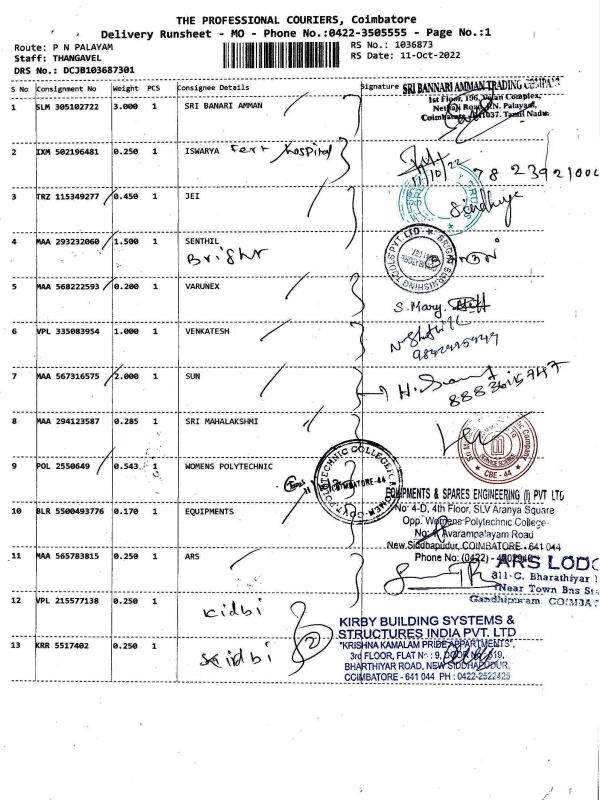 THE PROFESSIONAL COURIERS, Coimbatore
Delivery Runsheet - MO - Phone No.:0422-3505555 - Page No.:1
Route: P N PALAYAM
RS No.: 1036873
Staff: THANGAVEL
RS Date: 11-Oct-2022
DRS No.: DCJB103687301
S No Consignment No Weight PCS Consignee Details Signature
SRI BANNARI AMMAN TRADING COMPANY
1 SLM 305102722 3.000 1 SRI BANARI AMMAN
2 IXM 502196481 0.250 1 ISWARYA Fert hospital
11/10/22
3 TRZ 115349277 0.450 1 JEI
Sindhiya
4 MAA 293232060 1.500 1 SENTHIL
Bright
5 MAA 568222593 0.200 1 VARUNEX
S. Mary
6 VPL 335083954 1.000 1 VENKATESH
7 MAA 567316575 2.000 1 SUN
8 MAA 294123587 0.285 1 SRI MAHALAKSHMI
CBE - 44
9 POL 2550649 0.543 1 WOMENS POLYTECHNIC
COIMBATORE-44
EQUIPMENTS & SPARES ENGINEERING (I) PVT LTD
10 BLR 5500493776 0.170 1 EQUIPMENTS
No: 4-D, 4th Floor, SLV Aranya Square
Opp. Womens Polytechnic College
Avarampalayam Road
New Siddhapudur, COIMBATORE - 641 044
Phone No: (0422) -
11 MAA 565783815 0.250 1 ARS
ARS LODG
311-C, Bharathiyar
Near Town Bus Sta
Gandhipuram, COIMBAT
12 VPL 215577138 0.250 1
kidbi
KIRBY BUILDING SYSTEMS &
STRUCTURES INDIA PVT. LTD
13 KRR 5517402 0.250 1
"KRISHNA KAMALAM PRIDE APPARTMENTS",
3rd FLOOR, FLAT No : 9, DOOR No : 619,
BHARTHIYAR ROAD, NEW SIDDHAPUDUR,
COIMBATORE - 641 044 PH : 0422-2522425